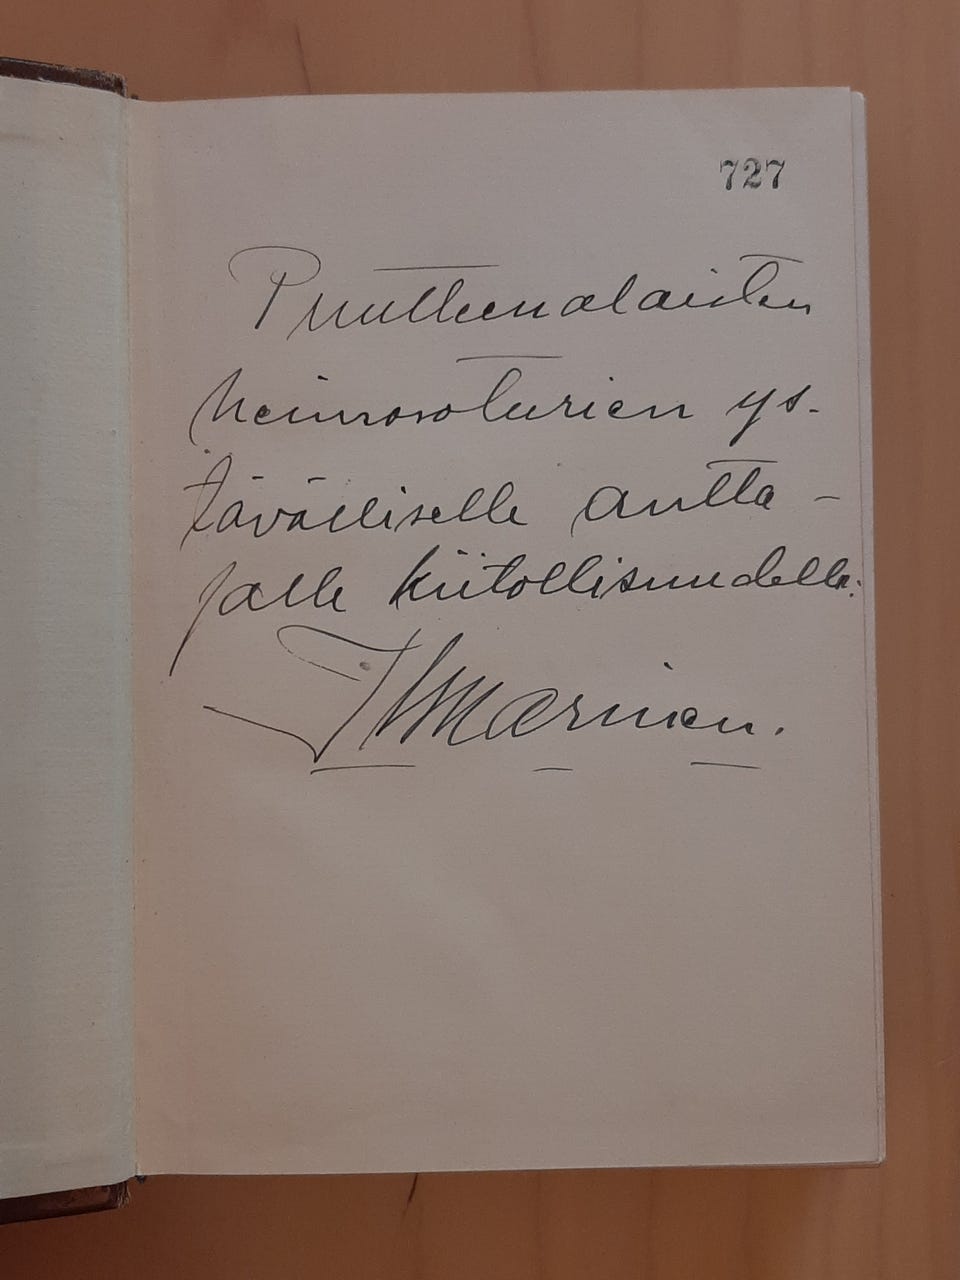 727
Puutteenalaisten
heimosoturien ys-
tävälliselle autta-
jalle kiitollisuudella: